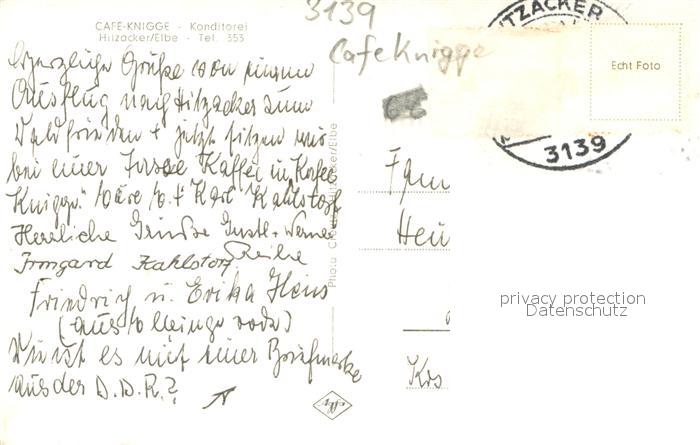 CAFE-KNIGGE - Konditorei
Hitzacker/Elbe - Tel. 353
3139
Cafe Knigge
HITZACKER
3139
Echt Foto
Herzliche Grüße von einem
Ausflug nach Hitzacker zum
Waldfrieden + jetzt sitzen wir
bei einer Tasse Kaffee im „Kaffee
Knigge." + Karl Kahlstorf
Herzliche Grüße Gustl + Werner
Reihe
Irmgard Kahlstorf.
Friedrich u. Erika Hens
(aus
Wie ist es mit einer Briefmarke
aus der D.D.R.?
Photo
Hitzacker/Elbe
Fam
Hei
Krs
privacy protection
Datenschutz